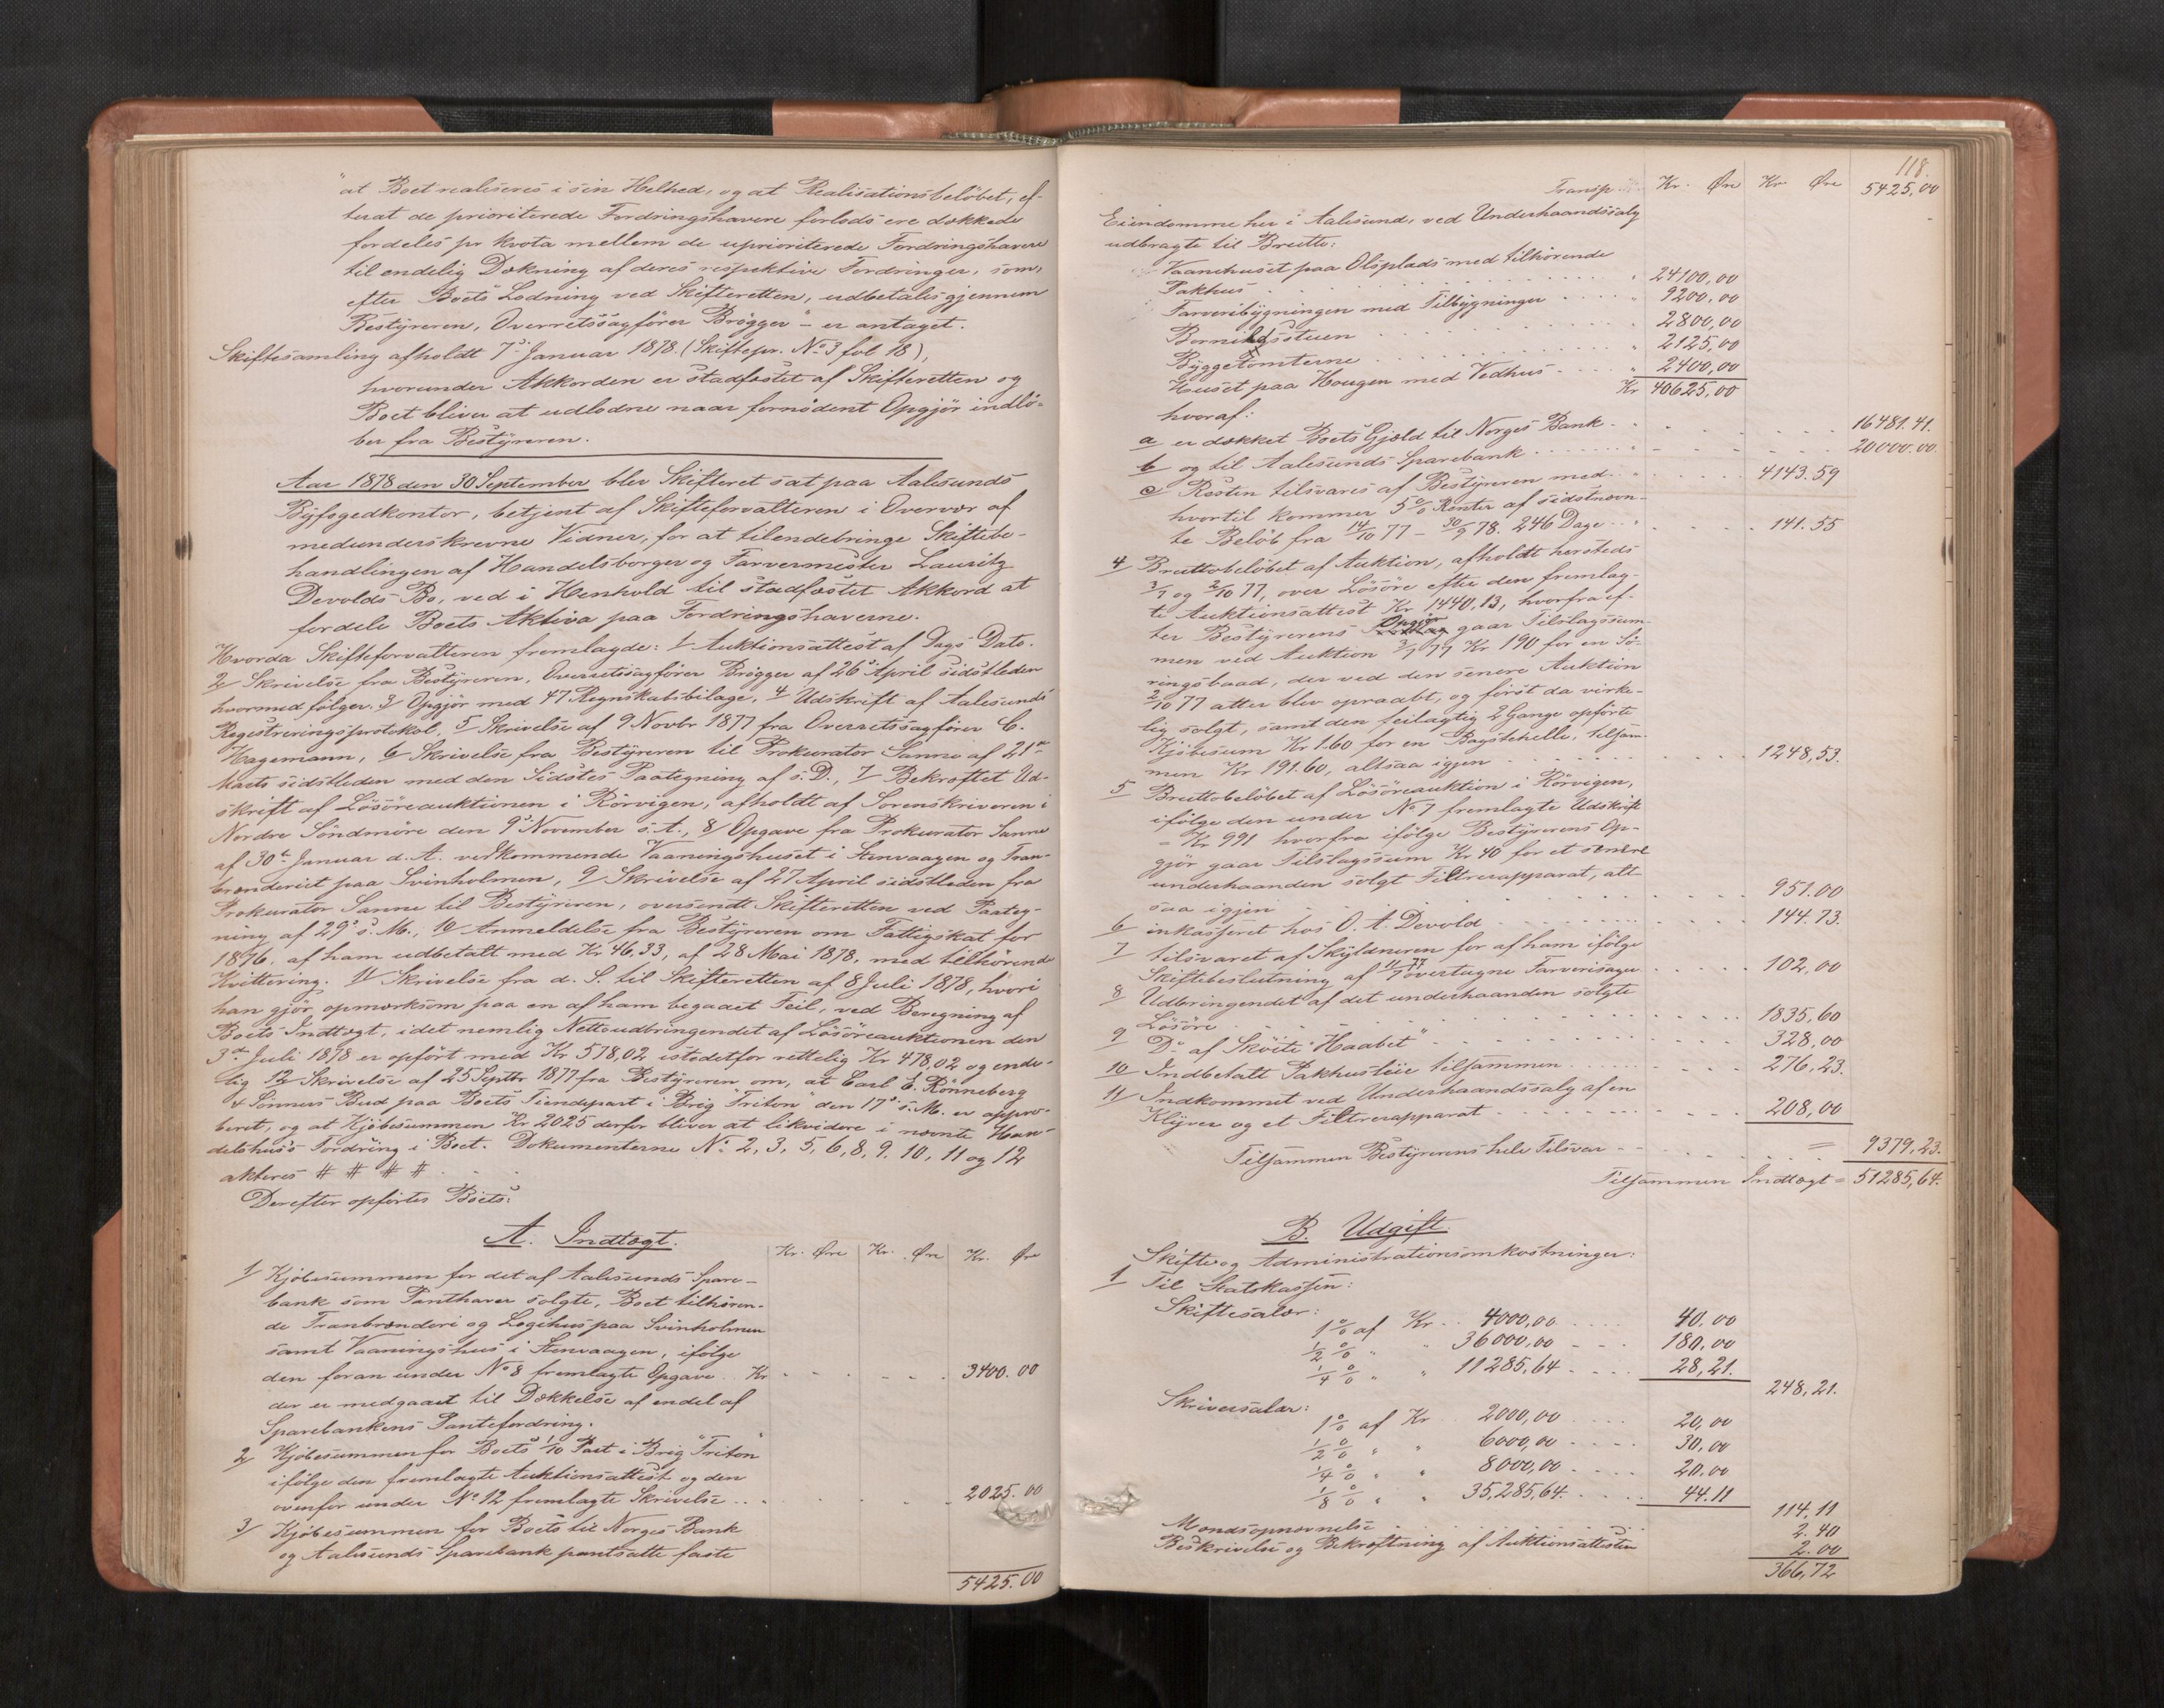 "at Boet realiseres i sin Helhed, og at Realisationsbeløbet, ef-
terat de prioriterede Fordringshavere forlods ere dækkede
fordeles pr kvota mellem de uprioriterede Fordringshavere
til endelig Dækning af deres respektive Fordringer, som,
efter Boets Lodning ved Skifteretten, udbetales gjennem
Bestyreren, Overretssagfører Brøgger" – er antaget.
Skiftesamling afholdt 7de Januar 1878. (Skiftepr. No 3 fol 18),
hvorunder Akkorden er stadfæstet af Skifteretten og
Boet bliver at udlodne naar fornødent Opgjør indlø-
ber fra Bestyreren.
Aar 1878 den 30 September blev Skifteret sat paa Aalesunds
Byfogedkontor, betjent af Skifteforvalteren i Overvær af
medunderskrevne Vidner, for at tilendebringe Skiftebe-
handlingen af Handelsborger og Farvermester Lauritz
Devolds Bo, ved i Henhold til stadfæstet Akkord at
fordele Boets Aktiva paa Fordringshaverne.
Hvorda Skifteforvalteren fremlagde: 1/ Auktionsattest af Dags Dato.
2/ Skrivelse fra Bestyreren, Overretssagfører Brøgger af 26de April sidstleden
hvormed følger. 3/ Opgjør med 47 Regnskabsbilage, 4/ Udskrift af Aalesunds
Registreringsprotokol, 5/ Skrivelse af 9 Novbr 1877 fra Overretssagfører C.
Hagemann, 6/ Skrivelse fra Bestyreren til Prokurator Sanne af 21de
Marts sidstleden med den Sidstes Paategning af s. D., 7/ Bekræftet Ud-
skrift af Løsøreauktionen i Rørvigen, afholdt af Sorenskriveren i
Nordre Søndmøre den 9de November s. A., 8/ Opgave fra Prokurator Sanne
af 30te Januar d. A. vedkommende Vaaningshuset i Stenvaagen og Tran-
brænderiet paa Svinholmen, 9/ Skrivelse af 27 April sidstleden fra
Prokurator Sanne til Bestyreren, oversendt Skifteretten ved Paateg-
ning af 29de s. M., 10 Anmeldelse fra Bestyreren om Fattigskat for
1876, af ham udbetalt med Kr 46,33, af 28 Mai 1878, med tilhørende
Kvittering. 11/ Skrivelse fra d. S. til Skifteretten af 8 Juli 1878, hvori
han gjør opmærksom paa en af ham begaaet Feil, ved Beregning af
Boets Indtægt, idet nemlig Nettoudbringendet af Løsøreauktionen den
3de Juli 1878 er opført med Kr 578,02 istedetfor rettelig Kr 478,02 og ende-
lig 12/ Skrivelse af 25 Septbr 1877 fra Bestyreren om, at Carl E. Rønneberg
& Sønners Bud paa Boets Tiendepart i Brig "Triton" den 17de s. M. er appro-
beret, og at Kjøbesummen Kr 2025 derfor bliver at likvidere i nævnte Han-
delshus's Fordring i Boet. Dokumenterne No 2, 3, 5, 6, 8, 9, 10, 11 og 12
akteres # # # #
Derefter opførtes Boets:
A. Indtægt.
Kr. Øre Kr. Øre Kr. Øre
1/ Kjøbesummen for det af Aalesunds Spare-
bank som Panthaver solgte, Boet tilhøren-
de Tranbrænderi og Logihus paa Svinholmen
samt Vaaningshus i Stenvaagen, ifølge
den foran under No 8 fremlagte Opgave Kr 3400.00
der er medgaaet til Dækkelse af endel af
Sparebankens Pantefordring.
2/ Kjøbesummen for Boets 1/10 Part i Brig "Triton"
ifølge den fremlagte Auktionsattest og den
ovenfor under No 12 fremlagte Skrivelse 2025.00
3/ Kjøbesummen for Boets til Norges Bank
og Aalesunds Sparebank pantsatte faste
5425.00
118.
Transp Kr. Øre Kr Øre 5425,00
Eiendomme her i Aalesund, ved Underhaandssalg
udbragte til Brutto:
Vaanehuset paa Olsplads med tilhørende
Pakhus 24100,00
Farveribygningen med Tilbygninger 9200,00
2800,00
Byggetomterne 2125,00
Huset paa Hougen med Vedhus 2400,00
Kr 40625,00
hvoraf:
a er dækket Boets Gjæld til Norges Bank 16481.41.
b og til Aalesunds Sparebank 20000.00
c Resten tilsvares af Bestyreren med 4143.59
hvortil kommer 5% Renter af sidstnævn-
te Beløb fra 14/10 77 – 30/9 78. 246 Dage 141.55
4 Bruttobeløbet af Auktion, afholdt hersteds
3/7 og 2/10 77, over Løsøre efter den fremlag-
te Auktionsattest Kr 1440,13, hvorfra ef-
ter Bestyrerens Opgjør gaar Tilslagssum-
men ved Auktion 3/7 77 Kr 190 for en Fø-
ringsbaad, der ved den senere Auktion
2/10 77 atter blev opraabt, og først da virke-
lig solgt, samt den feilagtig 2 Gange opførte
Kjøbesum Kr 1.60 for en Bagstehelle, tilsam-
men Kr 191.60, altsaa igjen 1248,53.
5 Bruttobeløbet af Løsøreauktion i Rørvigen,
ifølge den under No 7 fremlagte Udskrift
= Kr 991 hvorfra ifølge Bestyrerens Op-
gjør gaar Tilslagssum Kr 40 for et senere
underhaanden solgt Filtrerapparat, alt
saa igjen 951.00
6 inkasseret hos O. A. Devold 144.73.
7 tilsvaret af Skyldneren for af ham ifølge
Skiftebeslutning af 11/7 77 overtagne Farverisager 102,00
8 Udbringendet af det underhaanden solgte
Løsøre 1835,60
9 Do af Skøite "Haabet" 328,00
10 Indbetalt Pakhusleie tilsammen 276,23.
11 Indkommet ved Underhaandssalg af en
Klyver og et Filtrerapparat 208,00
Tilsammen Bestyrerens hele Tilsvar = 9379,23.
Tilsammen Indtægt = 51285,64.
B. Udgift.
Skifte og Administrationsomkostninger:
1 Til Statskassen:
Skiftesalær:
1% af Kr 4000,00 40.00
1/2 % " " 36000,00 180,00
1/4 % " " 11285,64 28,21.
248,21.
Skriversalær:
1% af Kr 2000,00 20,00
1/2 % " " 6000,00 30,00
1/4 % " " 8000,00 20.00
1/8 % " " 35,285,64. 44.11
114.11
Mandsopnævnelse 2.40
Beskrivelse og Bekræftning af Auktionsattesten 2.00
366,72